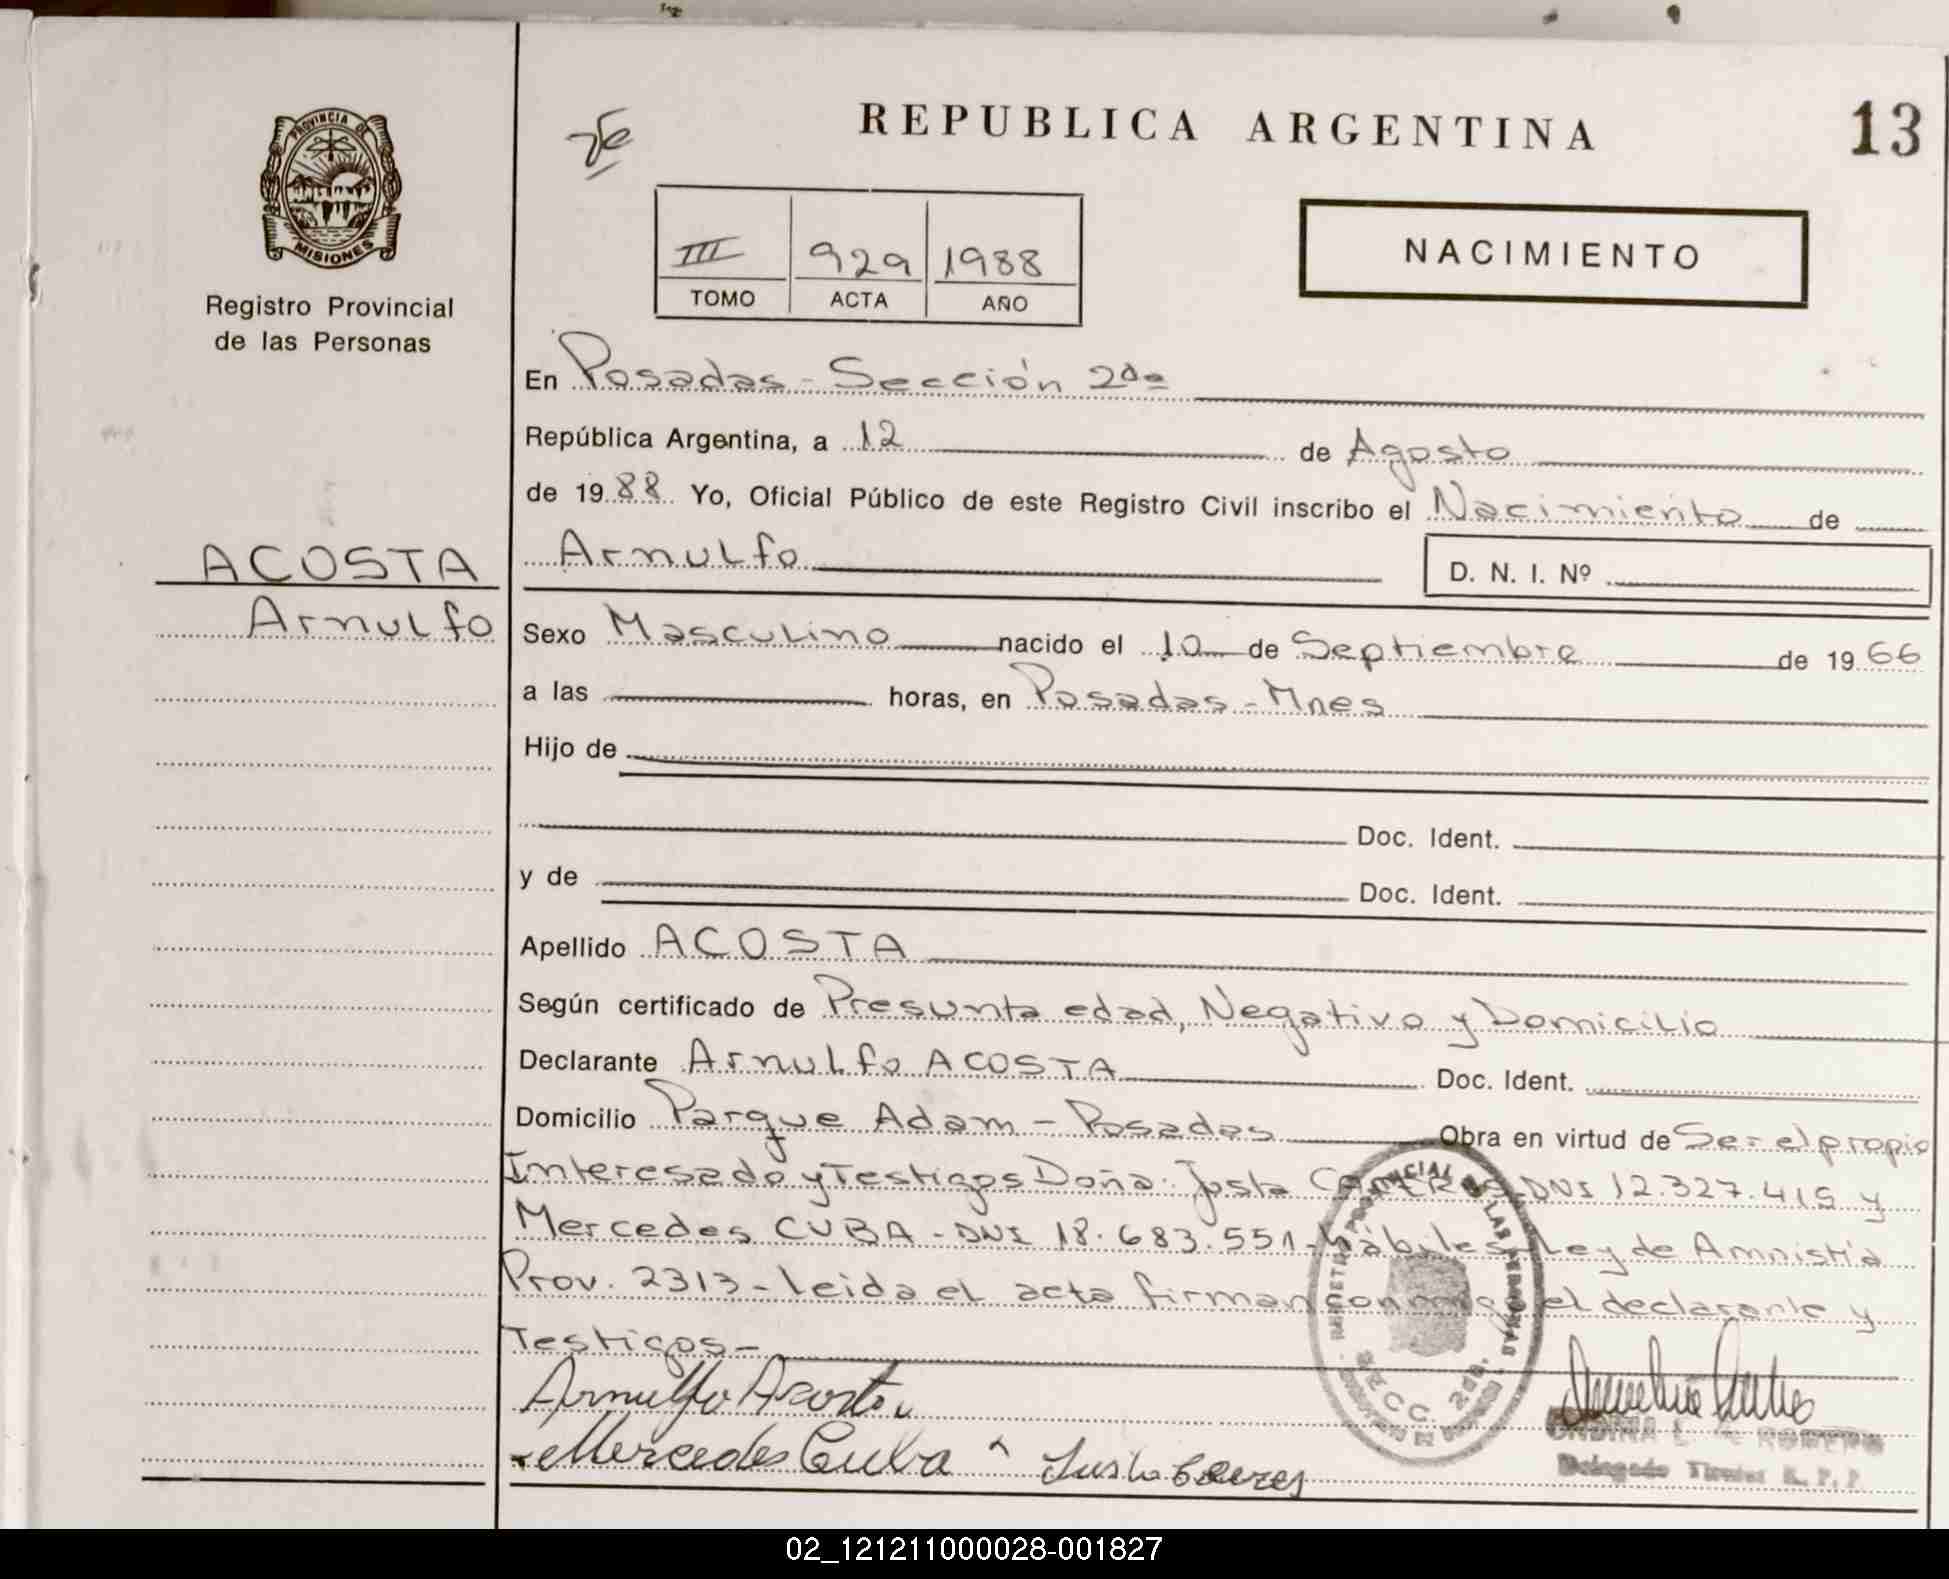 REPUBLICA ARGENTINA
13
PROVINCIA DE
MISIONES
Registro Provincial
de las Personas
III 929 1988
TOMO ACTA AÑO
NACIMIENTO
En Posadas - Sección 2da
República Argentina, a 12 de Agosto
de 1988 Yo, Oficial Público de este Registro Civil inscribo el Nacimiento de
ACOSTA
Arnulfo
Arnulfo D. N. I. Nº
Sexo Masculino nacido el 10 de Septiembre de 1966
a las horas, en Posadas - Mnes
Hijo de
Doc. Ident.
y de Doc. Ident.
Apellido ACOSTA
Según certificado de Presunta edad, Negativo y Domicilio
Declarante Arnulfo ACOSTA Doc. Ident.
Domicilio Parque Adam - Posadas Obra en virtud de Ser el propio
Interesado y Testigos Doña: Justa DNI 12.327.415 y
Mercedes CUBA - DNI 18.683.551 - hábiles - Ley de Amnistía
Prov. 2313 - leida el acta firman conmigo el declarante y
Testigos -
Arnulfo Acosta
Mercedes Cuba
SECC. 2da.
02_121211000028-001827